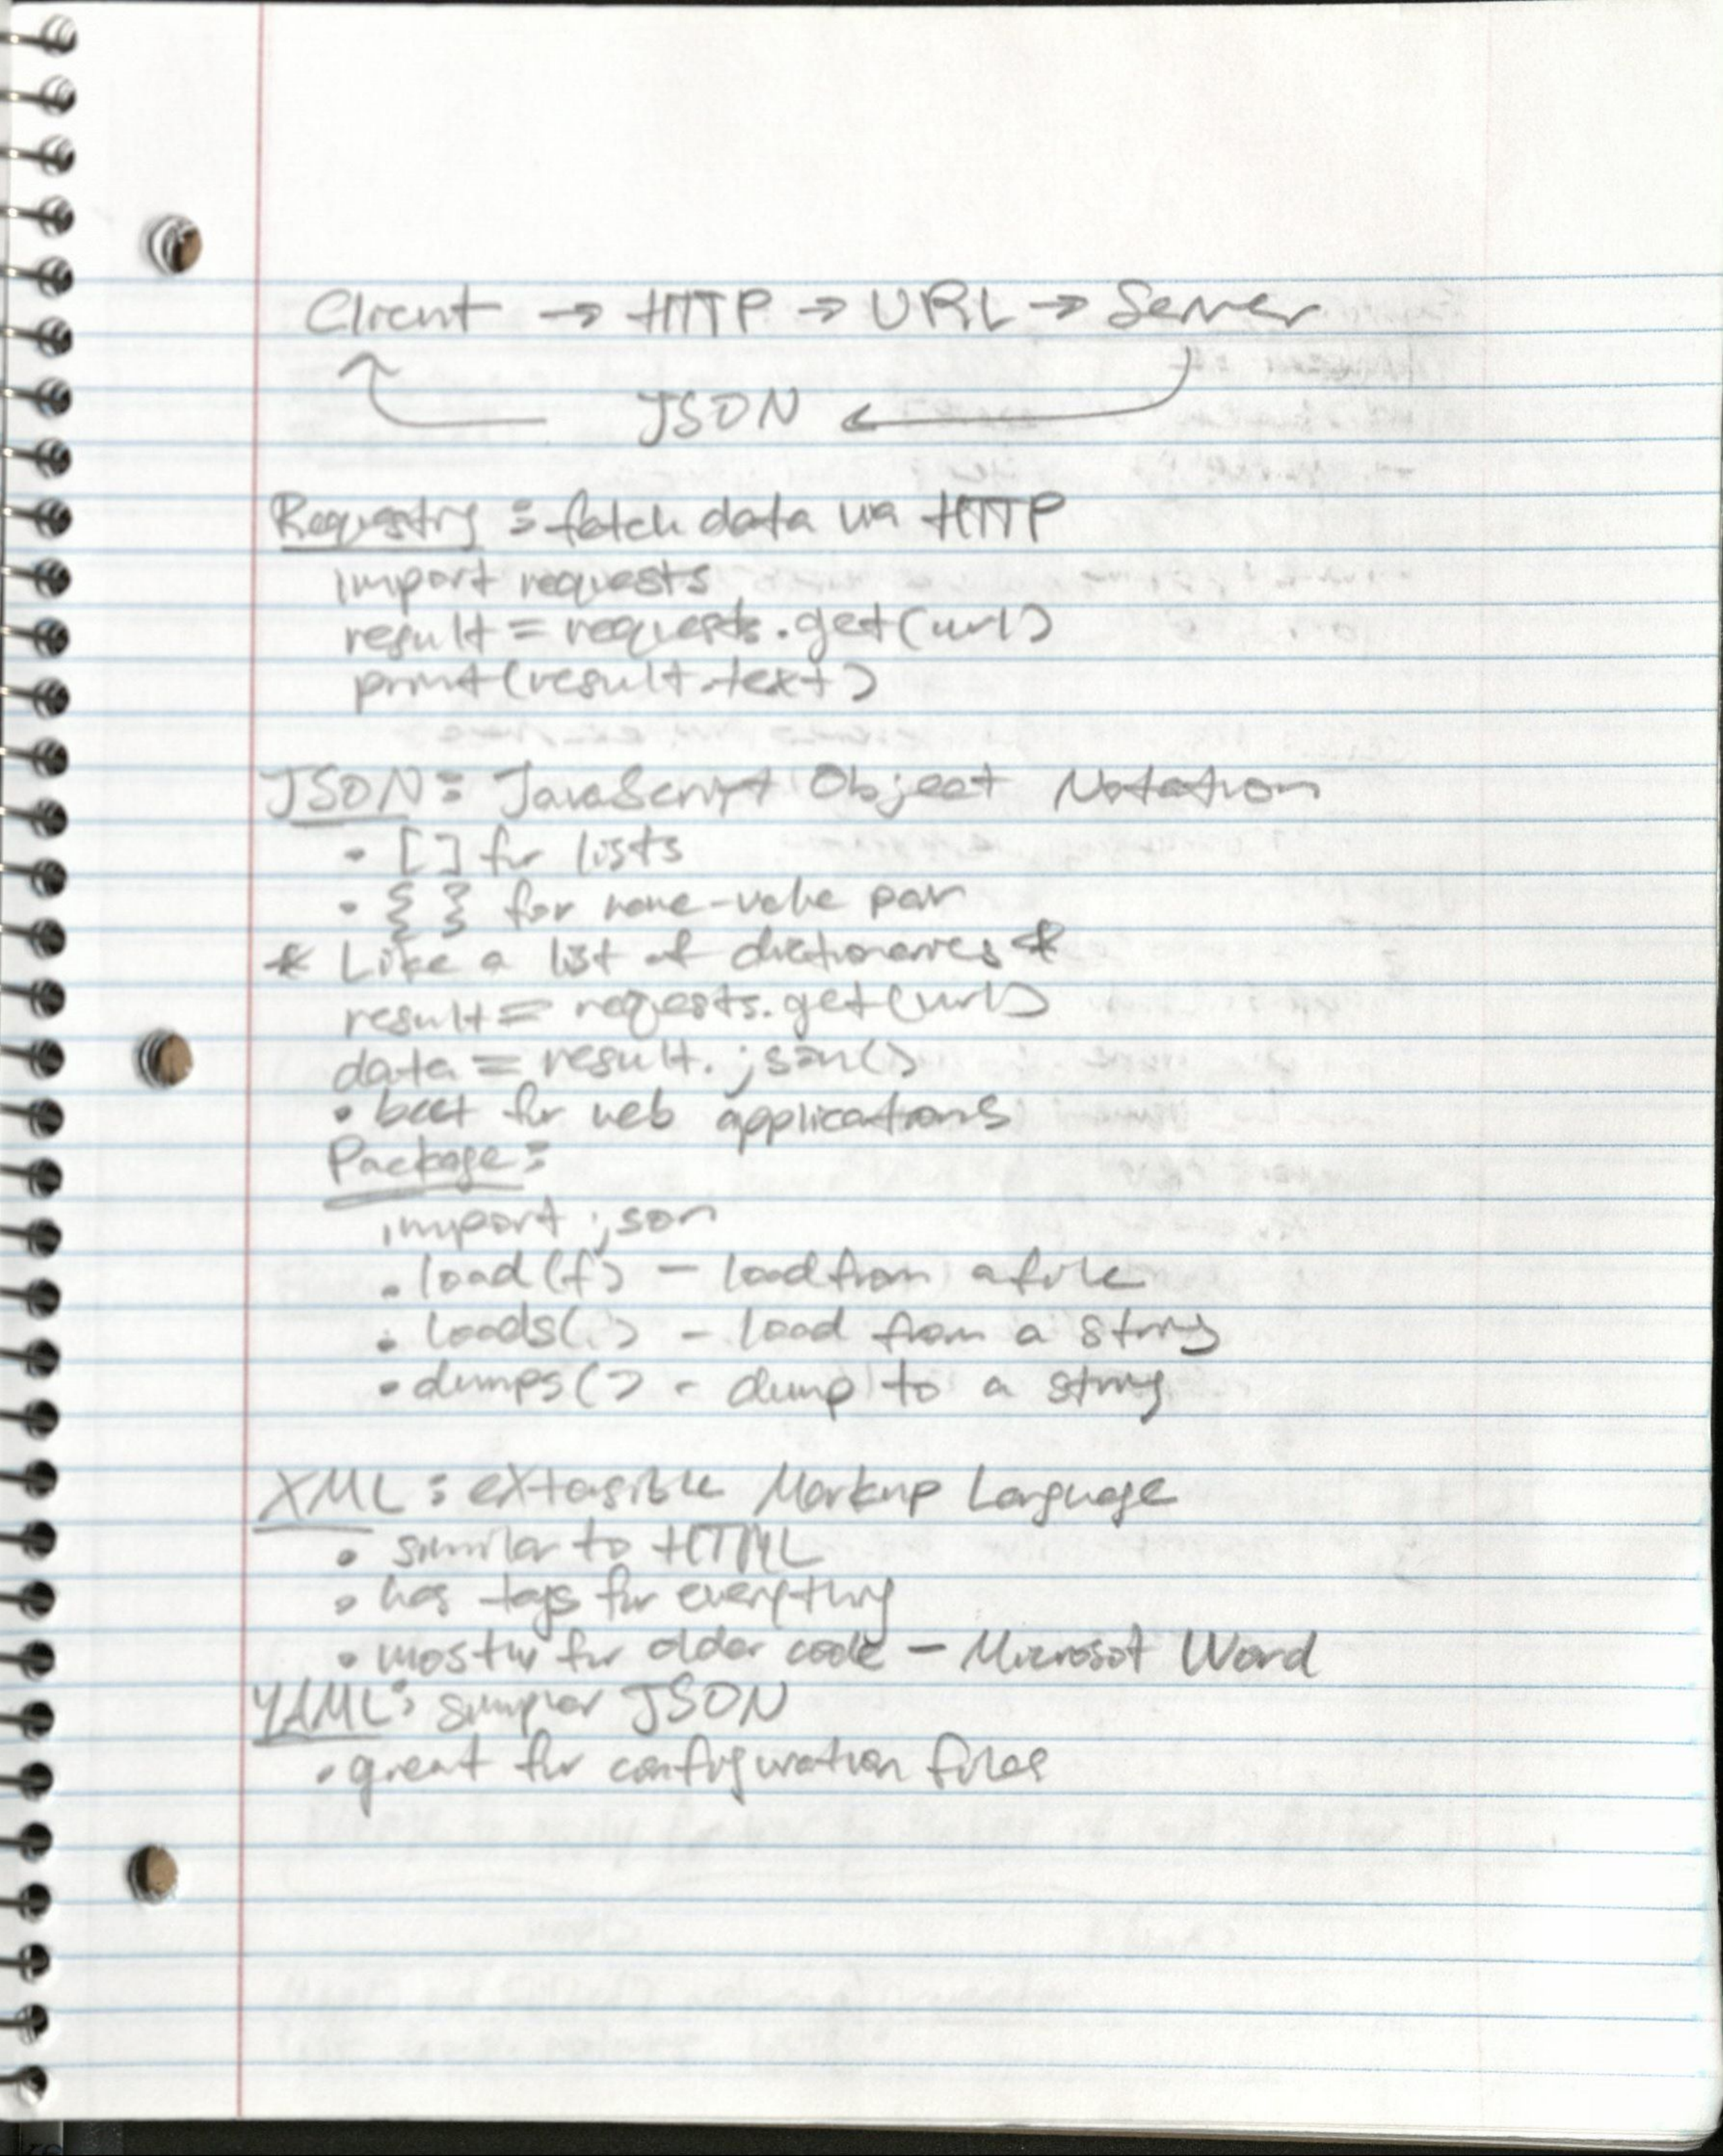 Client → HTTP → URL → Server
JSON
Requesting : fetch data via HTTP
import requests
result = requests.get(url)
print(result.text)
JSON : JavaScript Object Notation
• [ ] for lists
• { } for name-value pair
* Like a list of dictionaries *
result = requests.get(url)
data = result.json()
• best for web applications
Package :
import json
• load(f) - load from a file
• loads( ) - load from a string
• dumps( ) - dump to a string
XML : eXtensible Markup Language
• similar to HTML
• has tags for everything
• mostly for older code - Microsot Word
YAML : simpler JSON
• great for configuration files